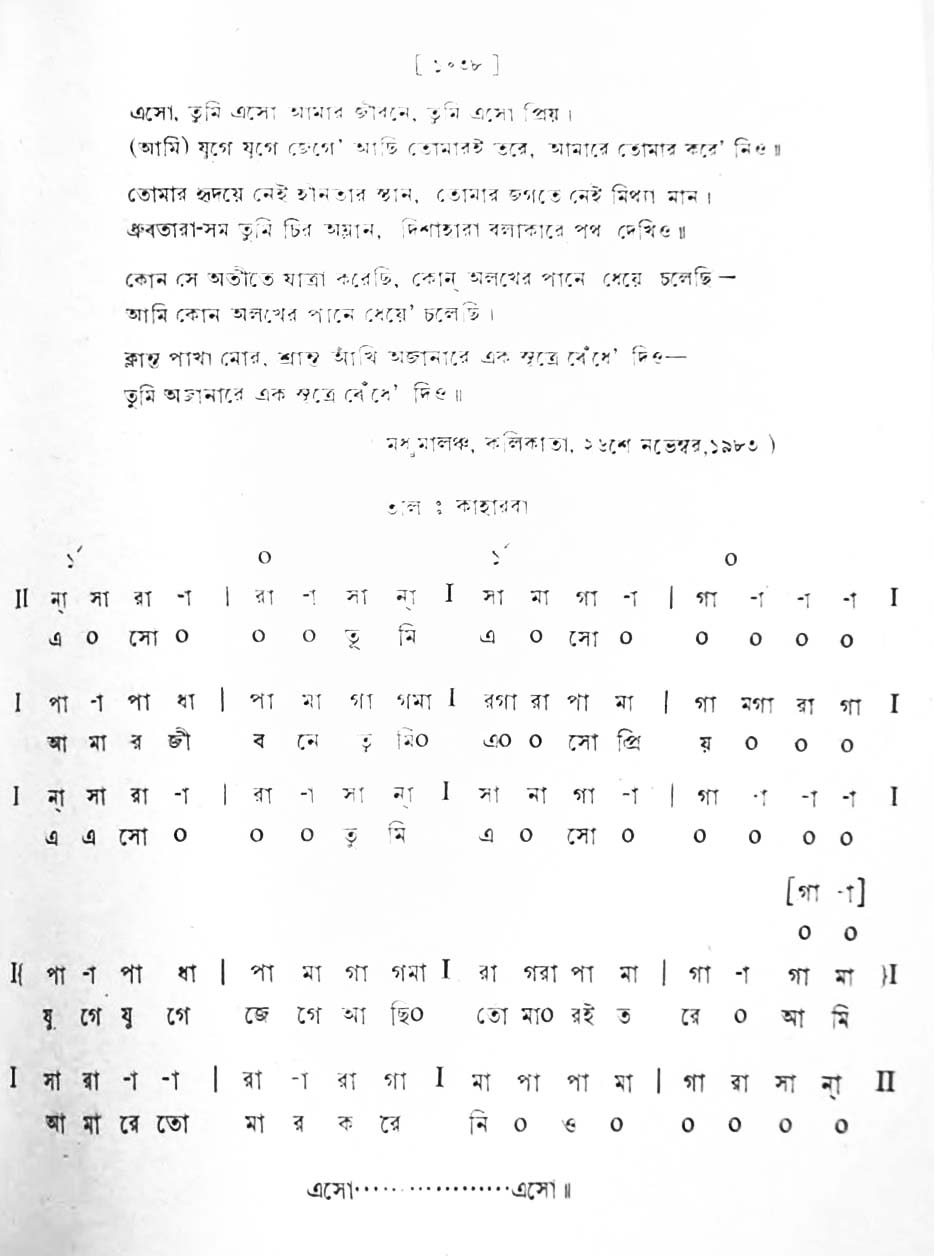 [ ১০৩৮ ]
এসো, তুমি এসো আমার জীবনে, তুমি এসো প্রিয়।
(আমি) যুগে যুগে জেগে' আছি তোমারই তরে, আমারে তোমার করে' নিও॥
তোমার হৃদয়ে নেই হীনতার স্থান, তোমার জগতে নেই মিথ্যা মান।
ধ্রুবতারা-সম তুমি চির অম্লান, দিশাহারা বলাকারে পথ দেখিও॥
কোন সে অতীতে যাত্রা করেছি, কোন্ অলখের পানে ধেয়ে চলেছি—
আমি কোন অলখের পানে ধেয়ে' চলেছি।
ক্লান্ত পাখা মোর, শ্রান্ত আঁখি অজানারে এক সূত্রে বেঁধে' দিও—
তুমি অজানারে এক সূত্রে বেঁধে' দিও॥
মধুমালঞ্চ, কলিকাতা, ২৬শে নভেম্বর,১৯৮৩ )
তাল ঃ কাহারবা
১´ ০ ১´ ০
II না্ সা রা -া | রা -া সা না্ I সা মা গা -া | গা -া -া -া I
এ ০ সো ০ ০ ০ তু মি এ ০ সো ০ ০ ০ ০ ০
I পা -া পা ধা | পা মা গা গমা I রগা রা পা মা | গা মগা রা গা I
আ মা র জী ব নে তু মি০ এ০ ০ সো প্রি য় ০ ০ ০
I না্ সা রা -া | রা -া সা না্ I সা মা গা -া | গা -া -া -া I
এ এ সো ০ ০ ০ তু মি এ ০ সো ০ ০ ০ ০ ০
[গা -া]
০ ০
I{ পা -া পা ধা | পা মা গা গমা I রা গরা পা মা | গা -া গা মা }I
যু গে যু গে জে গে আ ছি০ তো মা০ রই ত রে ০ আ মি
I সা রা -া -া | রা -া রা গা I মা পা পা মা | গা রা সা না্ II
আ মা রে তো মা র ক রে নি ০ ও ০ ০ ০ ০ ০
এসো····················এসো॥